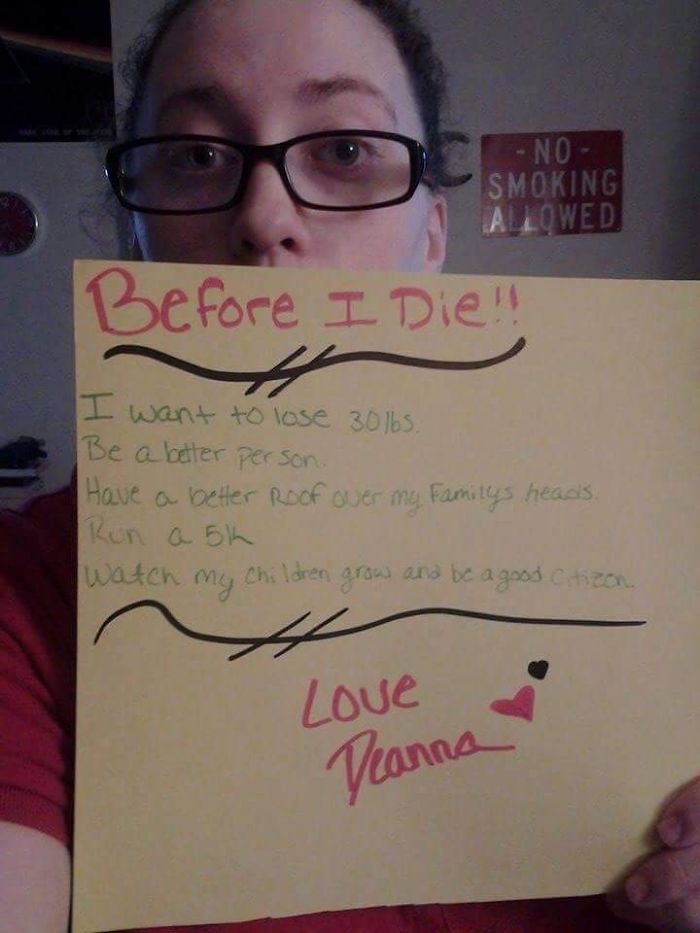 - NO -
SMOKING
ALLOWED
Before I Die!!
I want to lose 30lbs.
Be a better person.
Have a better Roof over my Familys heads.
Run a 5k
Watch my children grow and be a good Citizen.
Love
Deanna